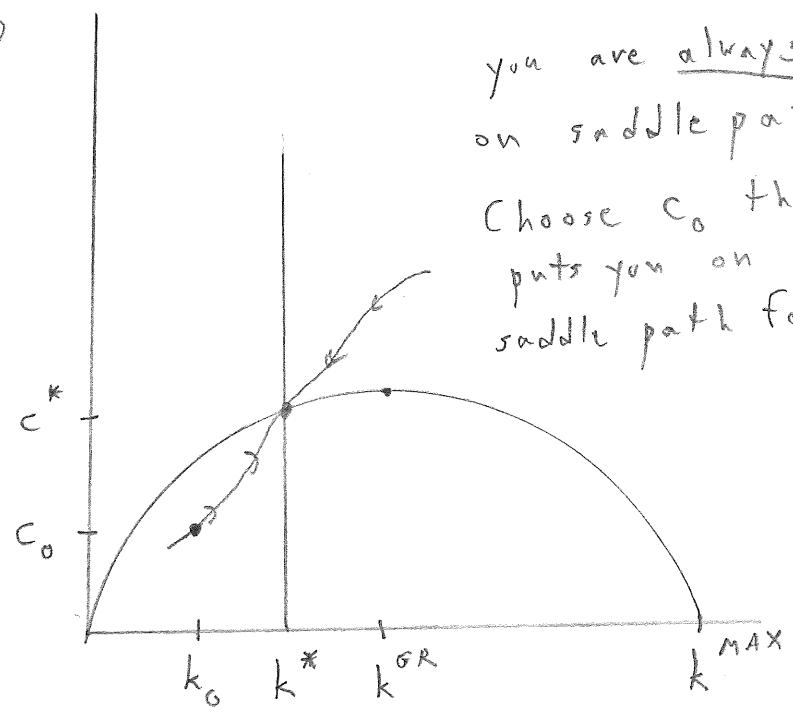 you are always
on saddle
Choose c₀
puts you on
saddle path
c*
c₀
k₀ k* k^GR k^MAX